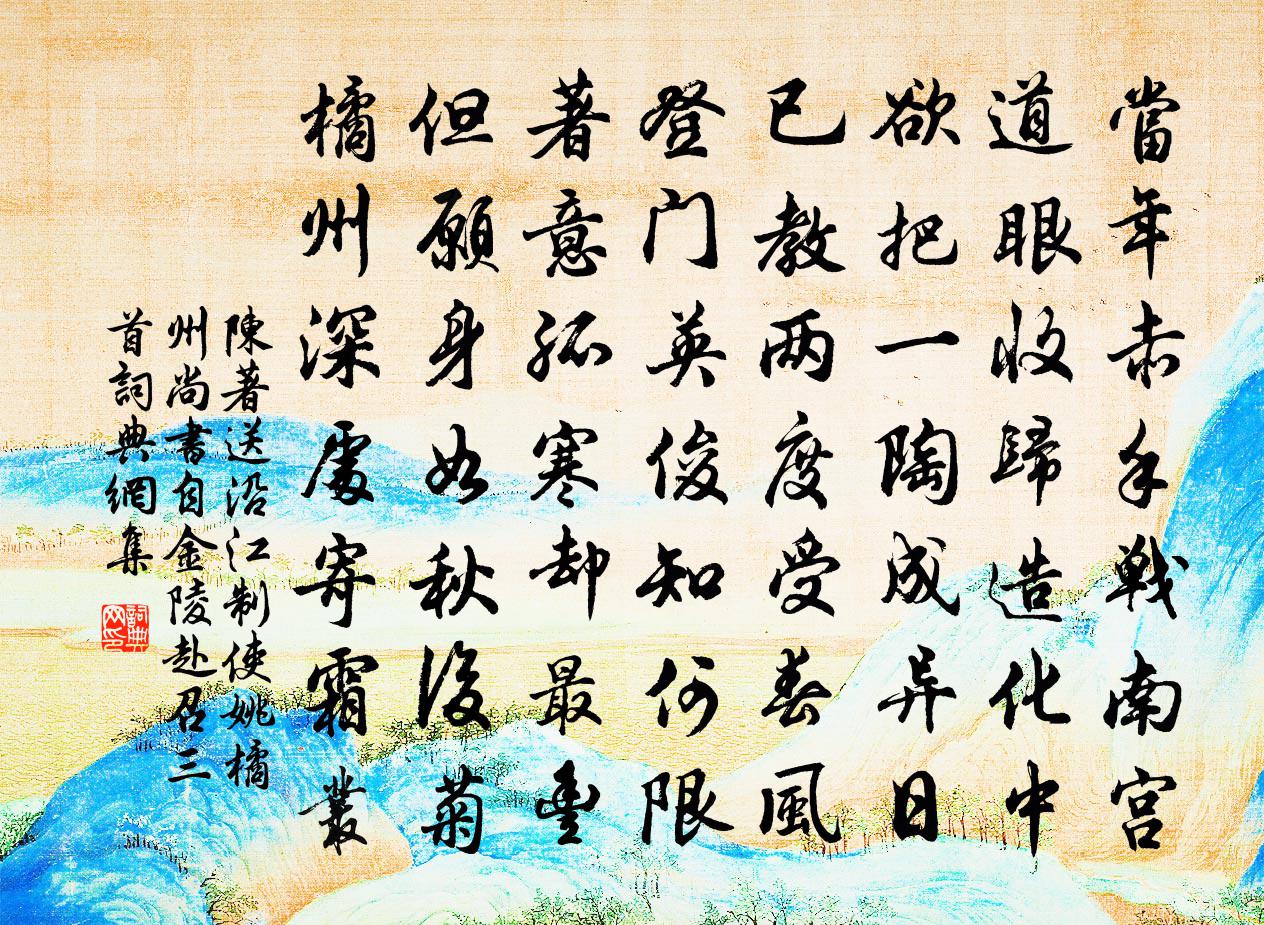 當年赤手戰南宮
道眼收歸造化中
欲把一陶成异日
已教兩度受春風
登门英俊知何限
著意孤寒却最豊
但願身如秋後菊
橘州深處寄霜叢
陳著送沿江制使姚橘
州尚書自金陵赴召三
首詞典網集
詞典
网印